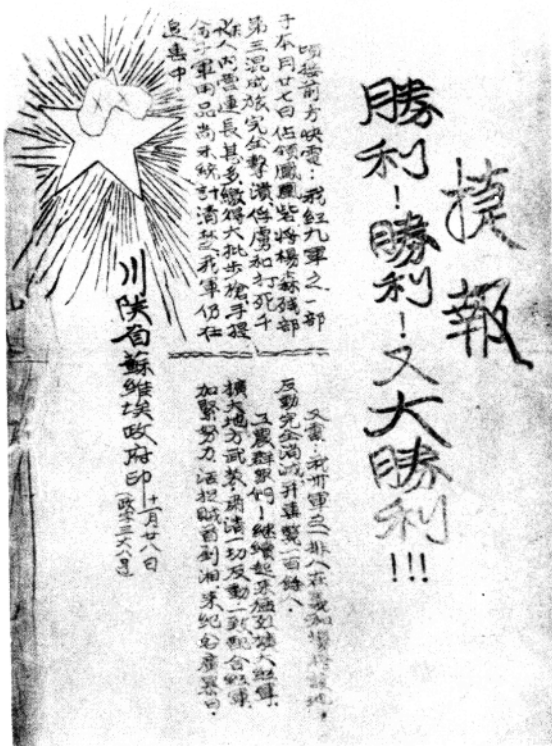 捷報
勝利！勝利！又大勝利!!!
頃接前方快電：我紅九軍之一部
于本月廿七日佔領鳳凰砦將楊森殘部
第三混成旅完全擊潰俘虜和打死千
人內營連長甚多繳得大批步槍手提
軍用品尚未統計清楚我軍仍在
追擊中
又電：我軍一排人在義和場将該地
反動完全消滅并
工農群眾們！繼續起來猛烈擴大紅軍
擴大地方武裝肅清一切反動一致配合紅軍
加緊努力活捉賊首劉湘來紀念廣暴日
川陝省蘇維埃政府印
十一月廿八日